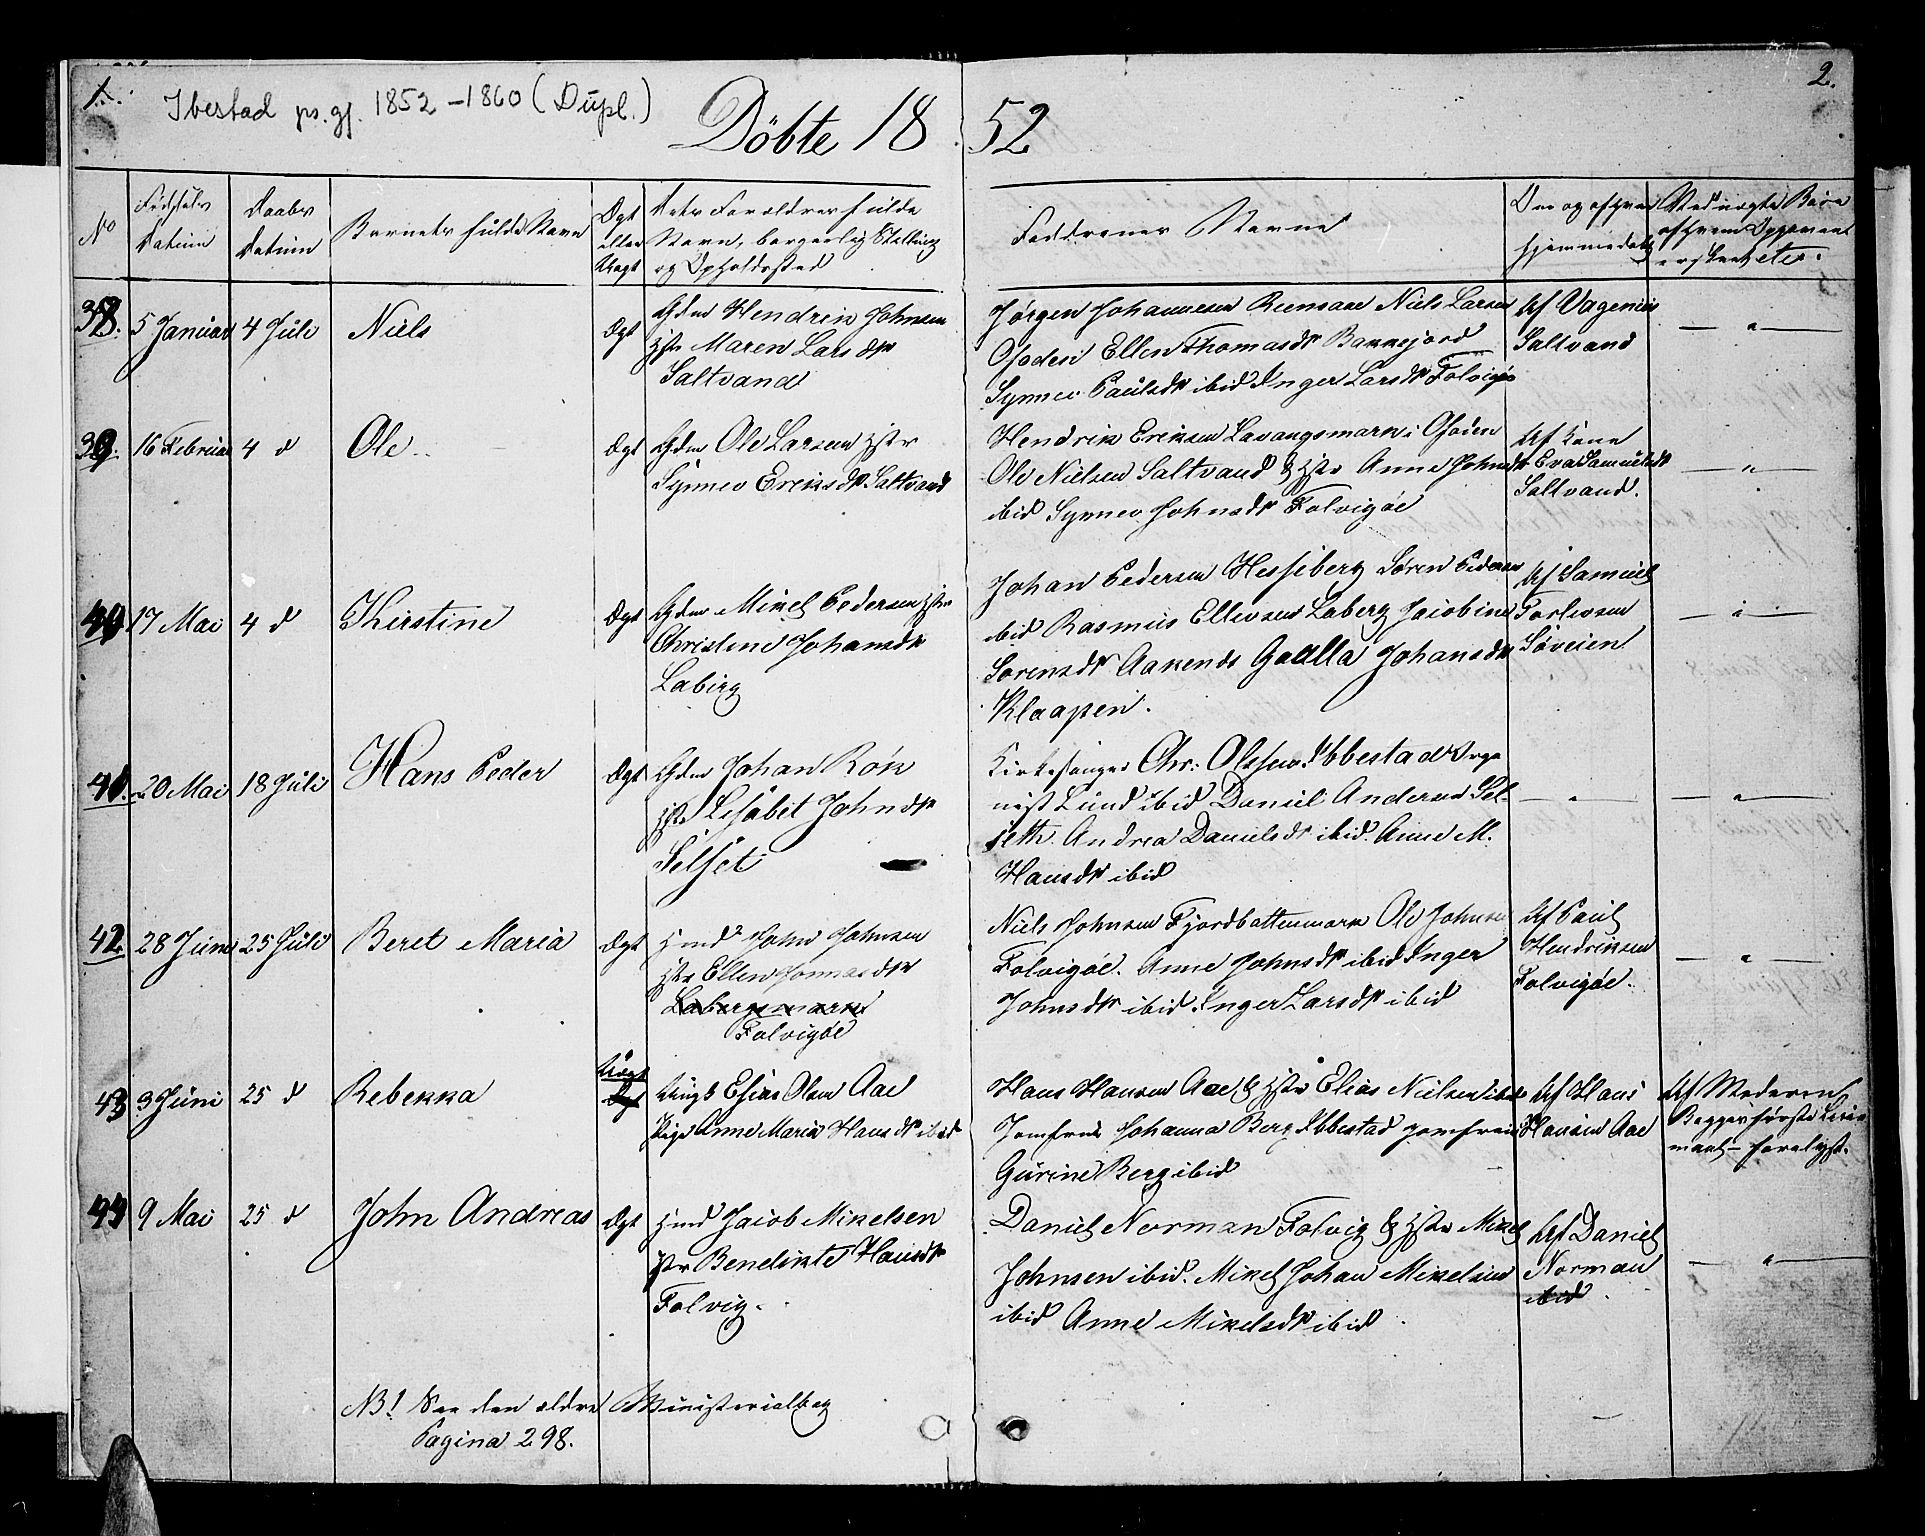 1.
2.
Ibestad ps.gj. 1852-1860 (Dupl.)
Døbte 18 52
No
Fødsels Datum
Daabs Datum
Barnets fulde Navn
Ægt eller Uægt
Dets Forældres fulde
Navn, borgerlig Stilling
og Opholdssted
Faddrenes Navne
Om og af hvem
hjemmedøbt
38. 5 Januar 4 Juli Niels Ægt Gdm Hendrik Johnsen
Hstr Maren Larsdtr
Saltvand
Jørgen Johannesen Niels Larsen
Ofoden Ellen Thomasdtr
Synnev Paulsdtr ibid Inger Larsdtr Folvigøe
Af Vagenius
Saltvand
— " —
39. 16 Februar 4 d Ole Ægt Gdm Ole Larsen Hstr
Synnev Eriksdtr Saltvand
Hendrik Eriksen Lavangsmark i Ofoden
Ole Nielsen Saltvand & Hstr Anne Johnsdtr
ibid Synnev Johnsdtr Folvigøe
Af Kone
Eva Samuelsdtr
Saltvand.
— " —
40 17 Mai 4 d Kirstine Ægt Gdm Mikel Pedersen Hstr
Christine Johansdtr
Laberg
Johan Pedersen Hesseberg Søren Pedersen
ibid Rasmus Ellevsen Laberg Jacobine
Sorensdtr Aakenes Gaalla Johansdtr
Klaapen.
Af Samuel
Torlevsen
Søveien
— " —
41. 20 Mai 18 Juli Hans Peder Ægt Gdm Johan Røk
Hstr Lisabet Johnsdtr
Selset
Kirkesanger Chr: Olsen Ibbestad Orga
nist Lund ibid Daniel Andersen Sel-
seth. Andrea Danielsdtr ibid. Anne M.
Hansdtr ibid
— " — — " —
42. 28 Juni 25 Juli Beret Maria Ægt Hmd John Johnsen
Hstr Ellen Jonnasdtr
Labergsmark
Folvigøe
Niels Johnsen Fjordbottenmark Ole Johnsen
Folvigøe. Anne Johnsdtr ibid Inger
Johnsdtr ibid. Inger Larsdtr ibid
Af Paul
Hendriksen
Folvigøe.
— " —
43 3 Juni 25 d Rebekka Uægt Ægt Ungk Esias Olsen Aae
Pige Anne Maria Hansdtr ibid
Hans Hansen Aae & Hstr Elias Nielsen ibid
Jomfrue Johanna Berg Ibbestad Jomfrue
Gurine Berg ibid
Af Hans
Hansen Aae
Af Moderen
Begges første Leier
maal -
44 9 Mai 25 d John Andreas Ægt Hmd Jacob Mikelsen
Hstr Benedikte Hansdtr
Folvig.
Daniel Norman Folvig & Hstr Mikel
Johnsen ibid. Mikel Johan Mikelsen
ibid Anne Mikelsdtr ibid
Af Daniel
Norman
ibid
— " —
NB! See den ældre Ministerialbog
Pagina 298.